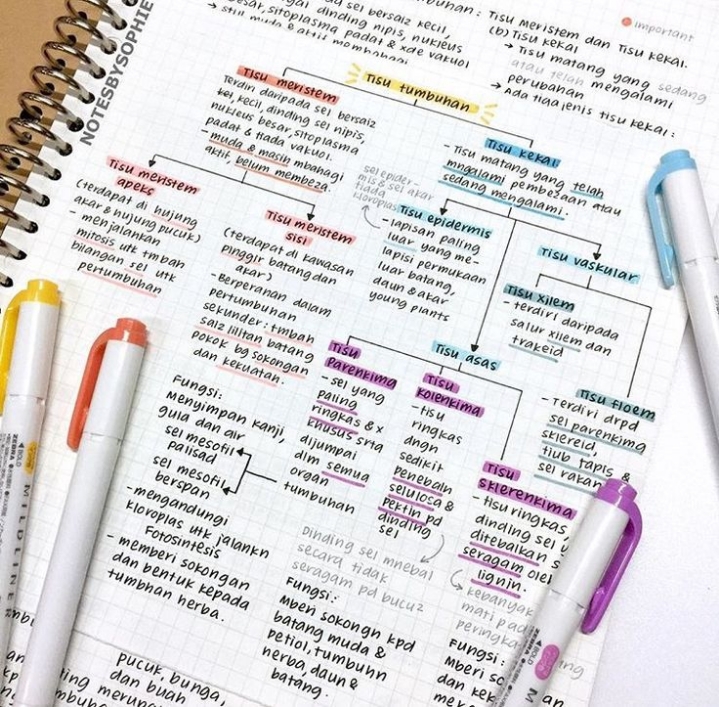 NOTESBYSOPHIE
sel bersaiz kecil,
dinding nipis, nukleus
besar, sitoplasma padat & xde vakuol
→ still muda & aktif membahagi
: Tisu meristem dan Tisu kekal.
important
(b) Tisu kekal
→ Tisu matang yang sedang
atau telah mengalami
perubahan
→ Ada tiga jenis tisu kekal :
Tisu tumbuhan
Tisu meristem
Terdiri daripada sel bersaiz
kecil, dinding sel nipis,
nukleus besar, sitoplasma
padat & tiada vakuol.
- muda & masih mbahagi
aktif, belum membeza.
Tisu meristem
apeks
(terdapat di hujung
akar & hujung pucuk)
- menjalankan
mitosis utk tmbah
bilangan sel utk
pertumbuhan
Tisu meristem
sisi
(terdapat di kawasan
pinggir batang dan
akar)
- Berperanan dalam
pertumbuhan
sekunder : tmbah
saiz lilitan batang
pokok bg sokongan
dan kekuatan.
Tisu kekal
- Tisu matang yang telah
mngalami pembezaan atau
sedang mengalami.
sel epider-
mis & sel akar
tiada
kloroplas
Tisu epidermis
- lapisan paling
luar yang me-
lapisi permukaan
luar batang,
daun & akar
young plants
Tisu vaskular
Tisu xilem
- terdiri daripada
salur xilem dan
trakeid
Tisu floem
- Terdiri drpd
sel parenkima
sklereid,
tiub tapis &
sel rakan
Tisu asas
Tisu
Parenkima
- sel yang
paling
ringkas & x
khusus srta
dijumpai
dlm semua
organ
tumbuhan
Fungsi :
Menyimpan kanji,
gula dan air
sel mesofil
palisad
sel mesofil
berspan
- mengandungi
kloroplas utk jalankn
Fotosintesis
- memberi sokongan
dan bentuk kepada
tumbhan herba.
Tisu
Kolenkima
- tisu
ringkas
dngn
sedikit
penebaln
selulosa &
pektin pd
dinding
sel
Dinding sel mnebal
secara tidak
seragam pd bucu2
Fungsi :
Mberi sokongn kpd
batang muda &
petiol, tumbuhn
herba, daun &
batang.
Tisu
sklerenkima
- tisu ringkas,
dinding sel
ditebalkan
seragam oleh
lignin.
kebanyak
mati pad
peringka
Fungsi :
Mberi so
dan kek
pucuk, bunga,
dan buah
ZEBRA
MILDLINER
BOLD